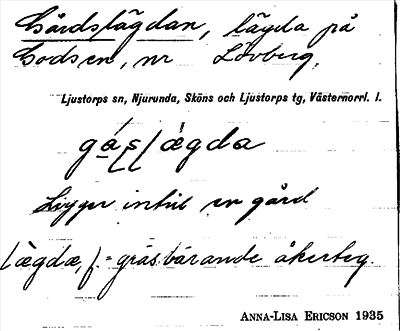 Gårdslägdan, lägda på
Godsen, nr Lövberg.
Ljustorps sn, Njurunda, Sköns och Ljustorps tg, Västernorrl. l.
gás lægda
Ligger intill en gård
lægdæ, f. = gräsbärande åkerteg.
ANNA-LISA ERICSON 1935